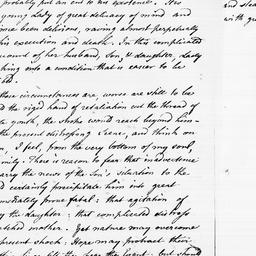 probably put an end to his existence. His
young Lady of great delicacy of mind and
ime been delirious, raving almost perpetually
his execution and death. In this complicated
ount of her husband, Son, & daughter, Lady
hing into a condition that is easier to be
ed.
these circumstances are, worse are still to be
ld the rigid hand of retaliation cut the thread of
te youth, the stroke would reach beyond him—
the present distressing Scene, and think on
n, I feel, from the very bottom of my soul,
mily. There is reason to fear that inadvertence
arry the news of the Son's situation to the
d certainly precipitate him into great
mediately prove fatal: that agitation of
y the daughter: that complicated distress
etched mother. Yet nature may overcome
present shock: Hope may protract their
the event: but should
and stea
with gr